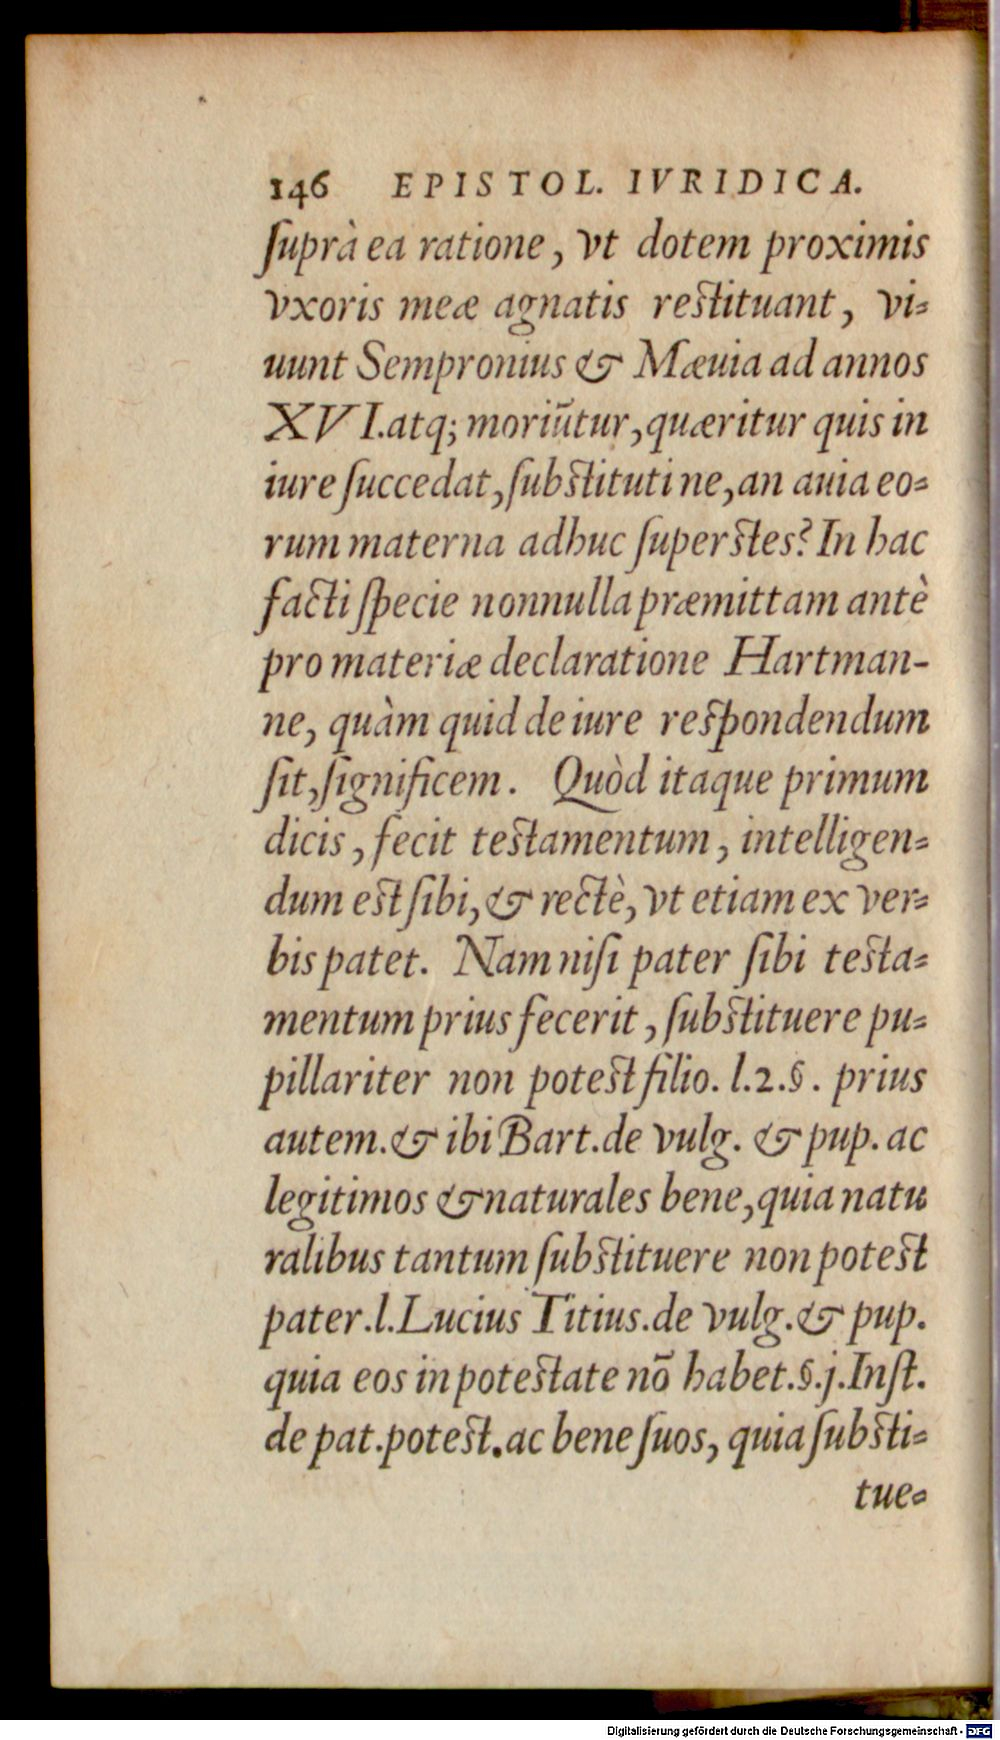 146 EPISTOL. IVRIDICA.
ſuprà ea ratione, vt dotem proximis
vxoris meæ agnatis reſtituant, vi-
uunt Sempronius & Mæuia ad annos
XVI. atq; moriūtur, quæritur quis in
iure ſuccedat, ſubſtituti ne, an auia eo-
rum materna adhuc ſuperſtes? In hac
facti ſpecie nonnulla præmittam antè
pro materiæ declaratione Hartman-
ne, quàm quid de iure reſpondendum
ſit, ſignificem. Quòd itaque primum
dicis, fecit teſtamentum, intelligen-
dum eſt ſibi, & rectè, vt etiam ex ver-
bis patet. Nam niſi pater ſibi teſta-
mentum prius fecerit, ſubſtituere pu-
pillariter non poteſt filio. l.2.§. prius
autem. & ibi Bart. de vulg. & pup. ac
legitimos & naturales bene, quia natu
ralibus tantum ſubſtituere non poteſt
pater. l. Lucius Titius. de vulg. & pup.
quia eos in poteſtate nō habet. §. j. Inſt.
de pat. poteſt. ac bene ſuos, quia ſubſti-
tue-
Digitalisierung gefördert durch die Deutsche Forschungsgemeinschaft - DFG